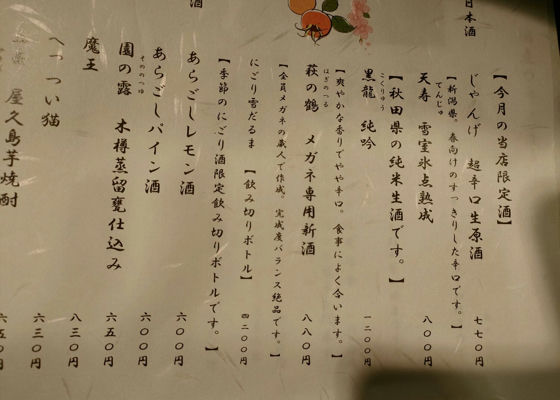 日本酒
【今月の当店限定酒】
じゃんげ 超辛口生原酒 七七〇円
【新潟県。春向けのすっきりした辛口です。】
天寿 雪室氷点熟成 八〇〇円
てんじゅ
【秋田県の純米生酒です。】
黒龍 純吟 一二〇〇円
こくりゅう
【爽やかな香りでやや辛口。食事によく合います。】
萩の鶴 メガネ専用新酒 八八〇円
はぎのつる
【全員メガネの蔵人で作成。完成度バランス絶品です。】
にごり雪だるま 【飲み切りボトル】 四二〇〇円
【季節のにごり酒限定飲み切りボトルです。】
酒
あらごしレモン酒 六〇〇円
あらごしパイン酒 六〇〇円
園の露 木樽蒸留甕仕込み 六五〇円
そののつゆ
魔王 八三〇円
へっつい猫 六三〇円
屋久島芋焼酎 六五〇円